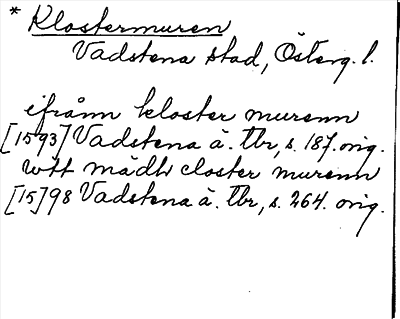 * Klostermuren
Vadstena stad, Österg. l.
ifrånn kloster murenn
[1593] Vadstena ä. Tbr, s. 187. orig.
wtt mädh closter murenn
[15]98 Vadstena ä. Tbr, s. 264. orig.